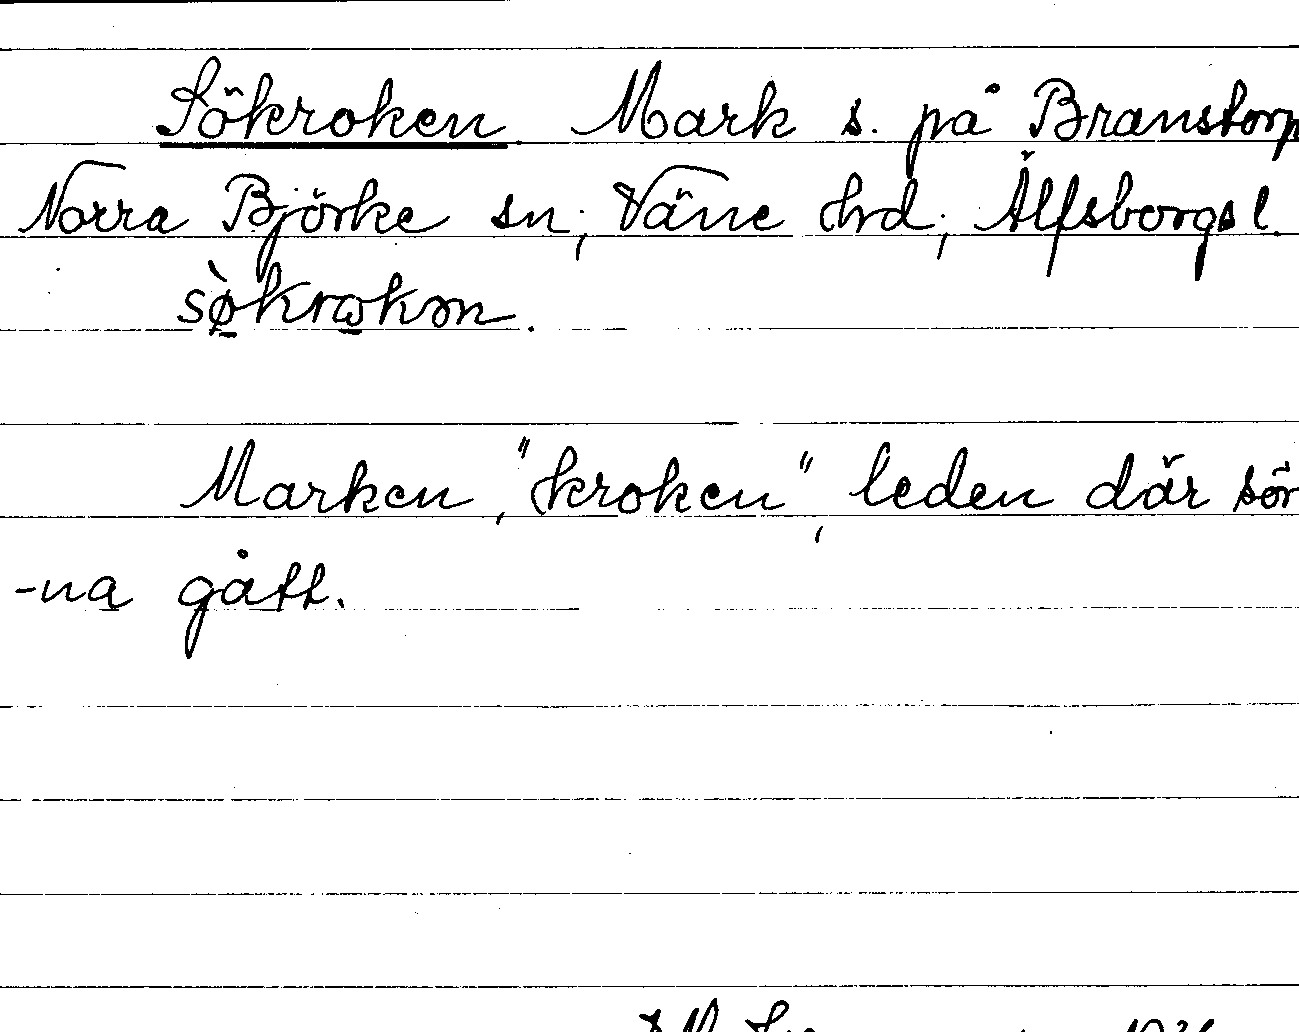 Sökroken. Mark s. på Branstorp
Norra Björke sn, Väne hrd, Älfsborgs l.
sø̀krokən.
Marken, "kroken", leden där sör
-na gått.